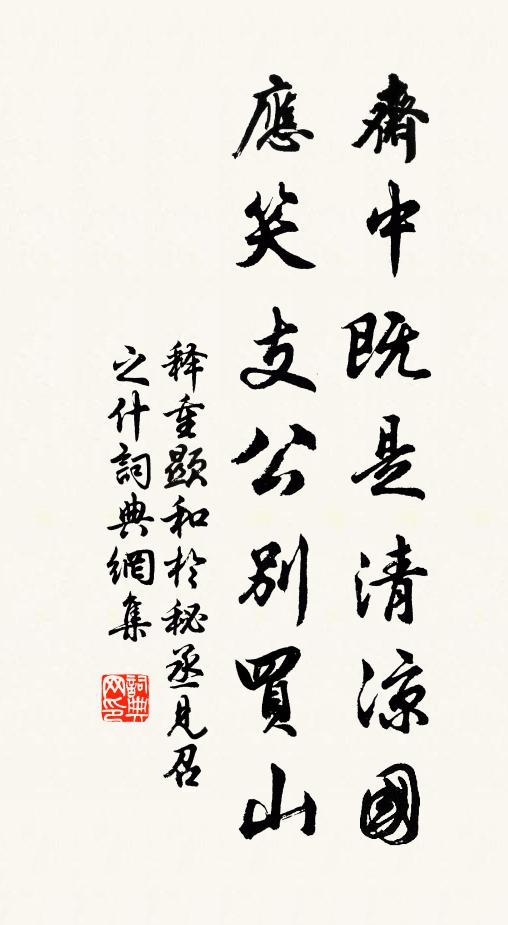 齋中既是清凉國
應笑支公別買山
释重顯和於秘丞見召
之什詞典網集
詞典
网印